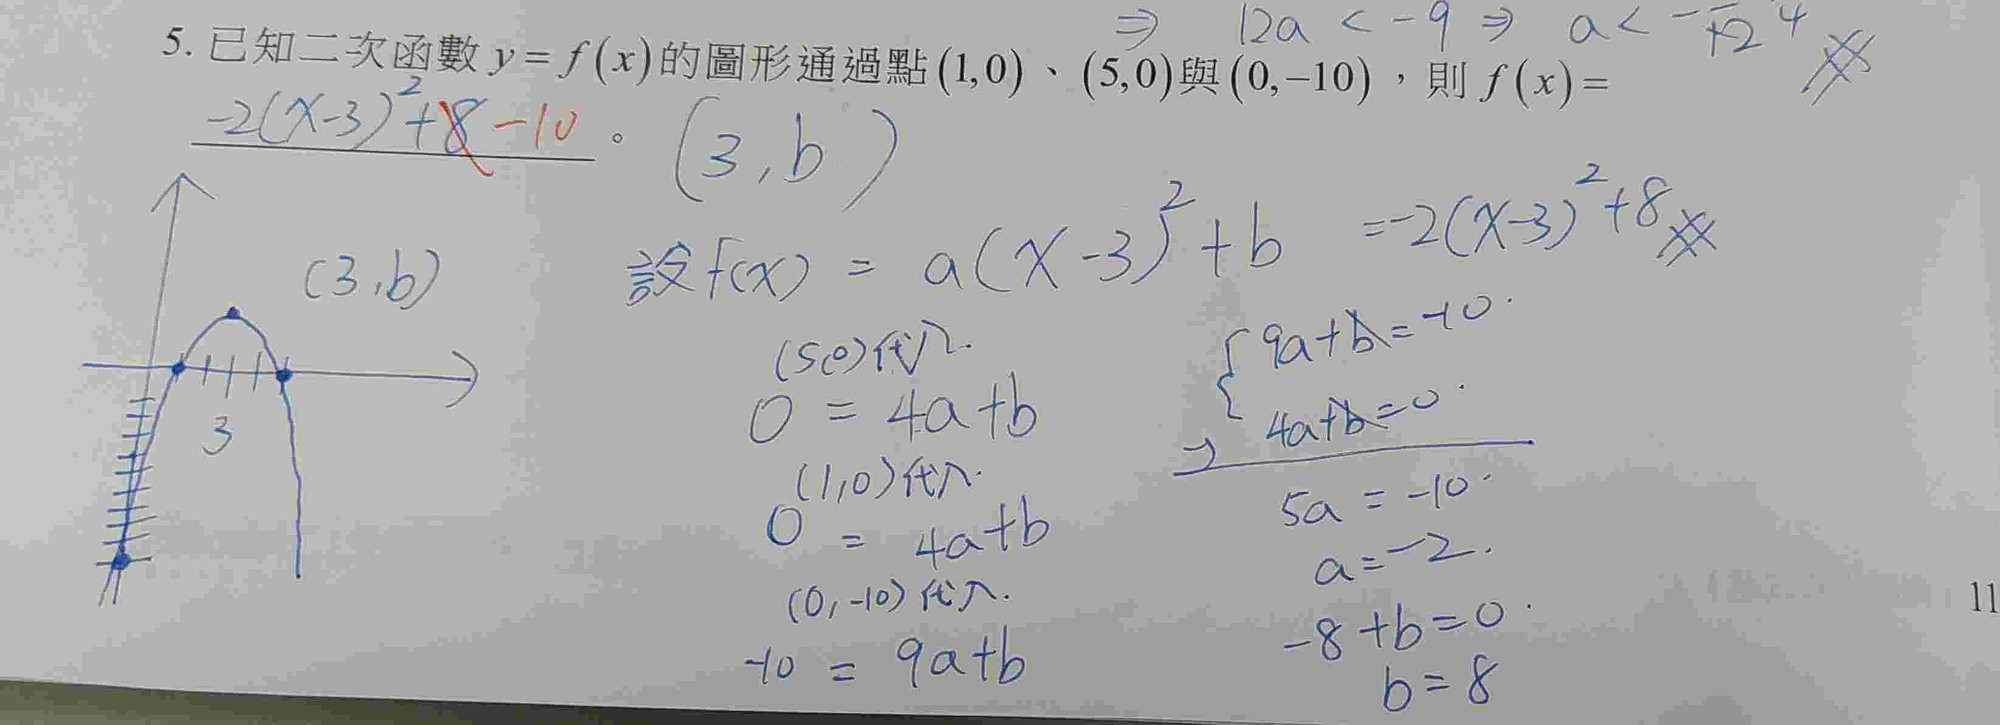 ⇒ 12a < -9 ⇒ a <
5. 已知二次函數 y = f(x) 的圖形通過點 (1,0)、(5,0) 與 (0,-10),則 f(x) =
-2(x-3)²+8 -10 。 (3,b)
(3,b)
3
設 f(x) = a(x-3)²+b = -2(x-3)²+8
(5,0)代入.
0 = 4a+b
(1,0)代入.
0 = 4a+b
(0,-10)代入.
-10 = 9a+b
9a+b=-10.
4a+b=0.
⇒
5a = -10.
a=-2.
-8+b=0.
b=8
11